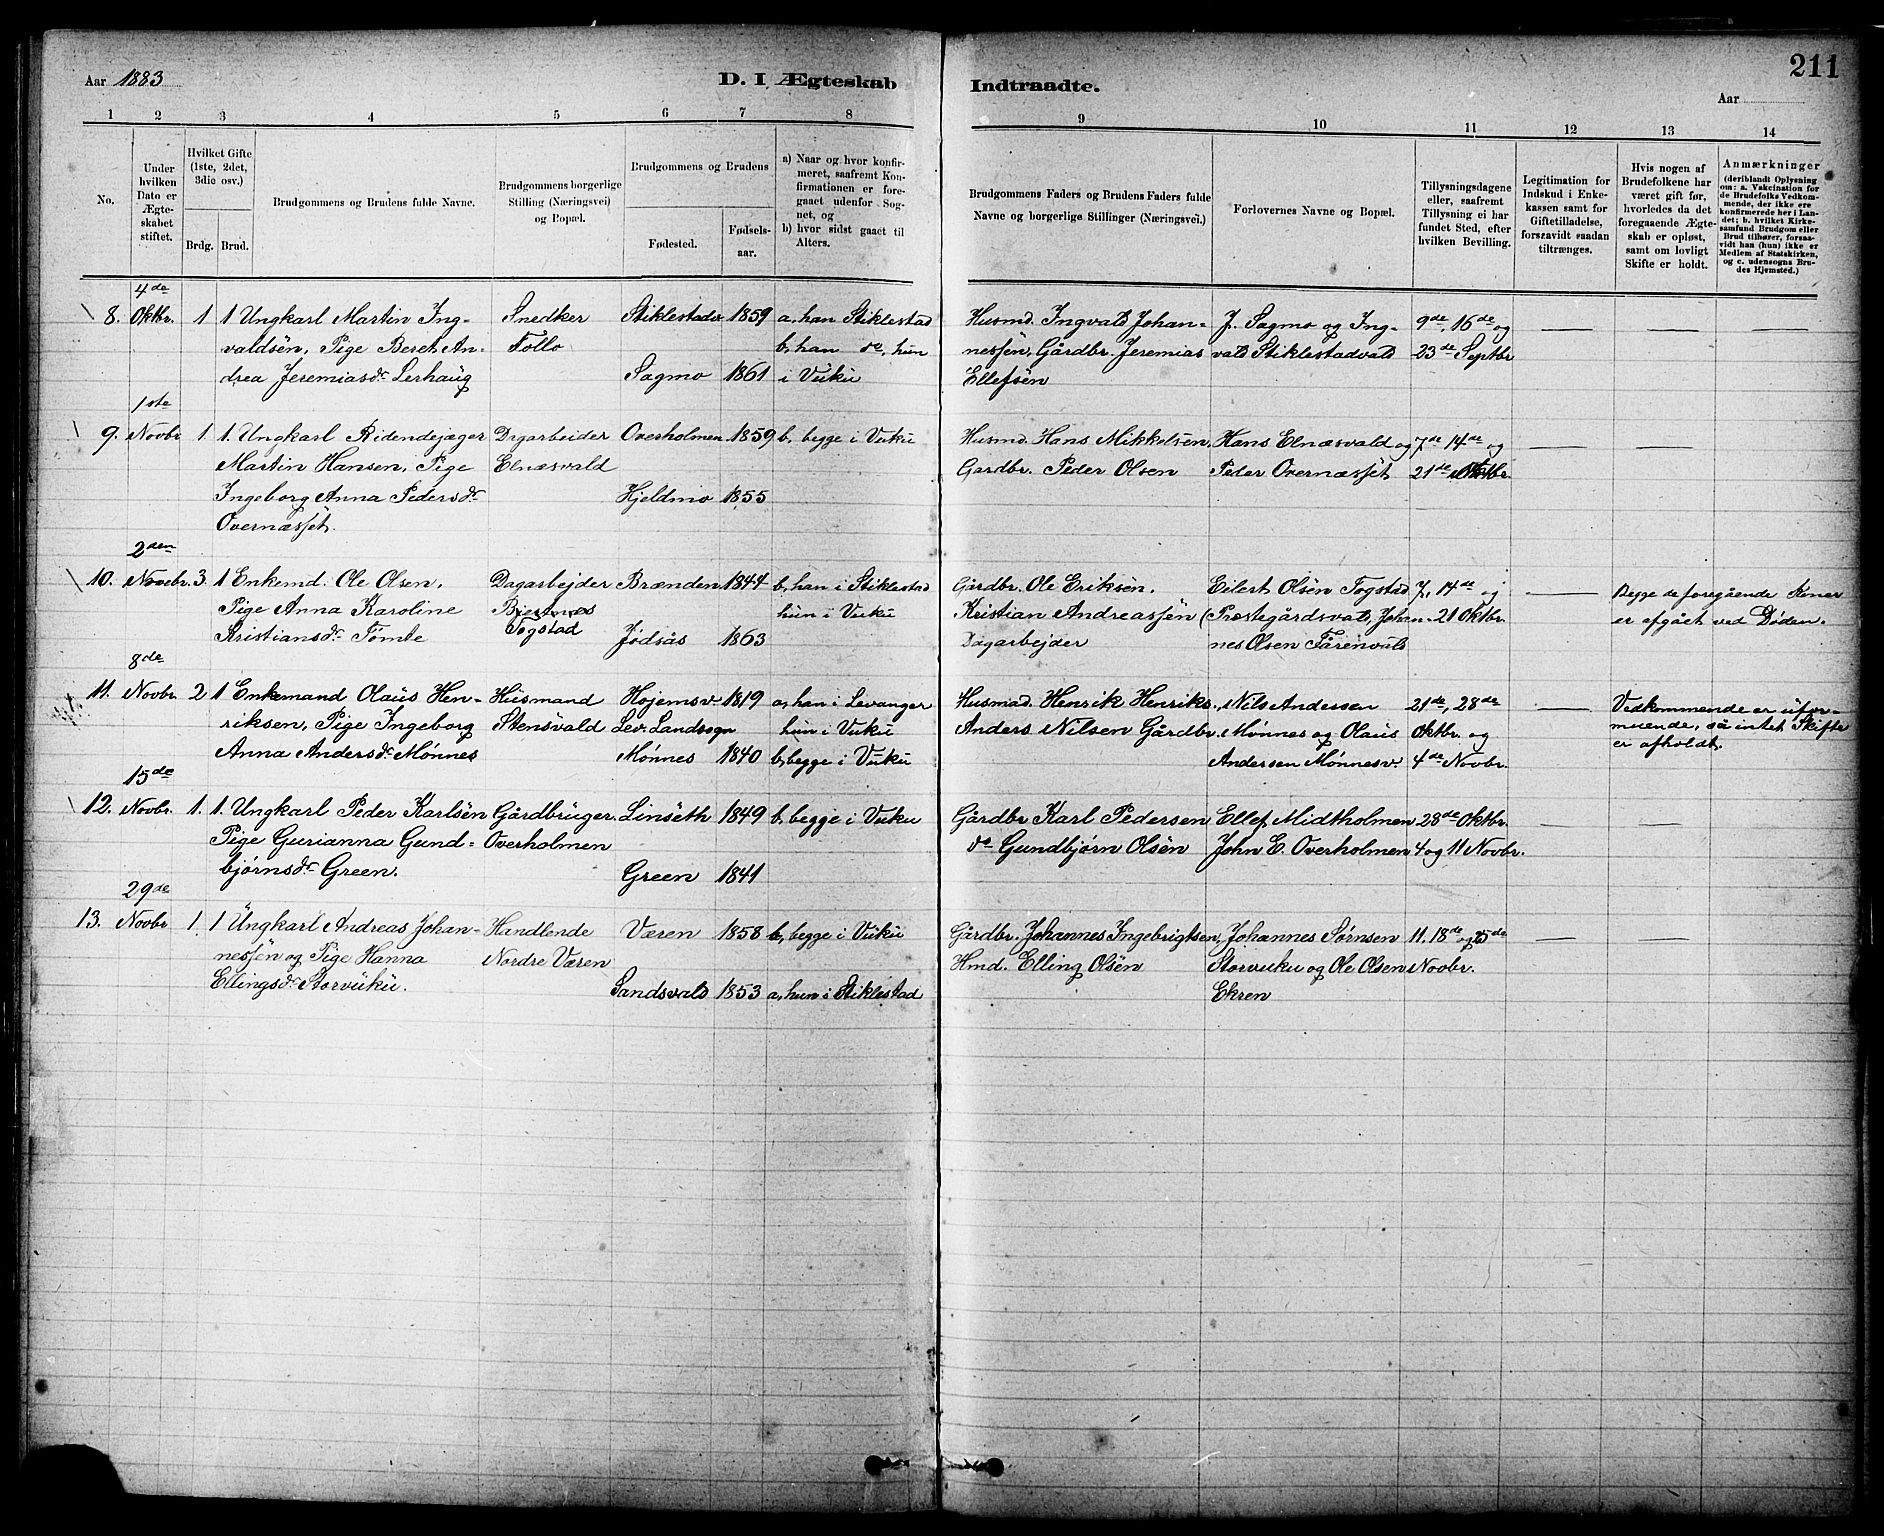 Aar 1883
D. I Ægteskab
Indtraadte.
211
Aar
1 2 3 4 5 6 7 8 9 10 11 12 13 14
No.
Under hvilken Dato er Ægteskabet stiftet.
Hvilket Gifte (1ste, 2det, 3die osv.)
Brdg. Brud.
Brudgommens og Brudens fulde Navne.
Brudgommens borgerlige Stilling (Næringsvei) og Bopæl.
Brudgommens og Brudens
Fødested.
Fødselsaar.
a) Naar og hvor konfirmeret, saafremt Konfirmationen er foregaaet udenfor Sognet, og
b) hvor sidst gaaet til Alters.
Brudgommens Faders og Brudens Faders fulde Navne og borgerlige Stillinger (Næringsvei.)
Forlovernes Navne og Bopæl.
Tillysningsdagene eller, saafremt Tillysning ei har fundet Sted, efter hvilken Bevilling.
Legitimation for Indskud i Enkekassen samt for Giftetilladelse, forsaavidt saadan tiltrænges.
Hvis nogen af Brudefolkene har været gift før, hvorledes da det foregaaende Ægteskab er opløst, samt om lovligt Skifte er holdt.
Anmærkninger (deriblandt Oplysning om: a. Vakcination for de Brudefolks Vedkommende, der ikke ere konfirmerede her i Landet; b. hvilket Kirkesamfund Brudgom eller Brud tilhører, forsaavidt han (hun) ikke er Medlem af Statskirken, og c. udensogns Brudes Hjemsted.)
4de
8. Oktbr. 1 1 Ungkarl Martin Ing- Snedker Stiklestadv. 1859 a, han Stiklestad Husmd. Ingvald Johan- J. Sagmo og Ing- 9de, 16de og
valdsen, Pige Beret An- Follo b, han do, hun nessen, Gårdbr. Jeremias vald Stiklestadvald 23de Septbr
drea Jeremiasdr Lerhaug Sagmo 1861 i Vuku Ellefsen
1ste
9. Novbr 1. 1. Ungkarl Ridendejæger Dagarbeider Overholmen 1859 b, begge i Vuku Husmd. Hans Mikkelsen, Hans Elnæsvald og 7de 14de og
Martin Hansen, Pige Elnæsvald Gardbr. Peder Olsen Peder Overnæsset 21de Oktbr
Ingeborg Anna Pedersdr Hjeldmo 1855
Overnæsset.
2den
10. Novebr. 3. 1 Enkemd. Ole Olsen, Dagarbejder Brænden 1844 b, han i Stiklestad Gårdbr. Ole Eriksen. Eilert Olsen Togstad 7, 14de og Begge de foregående Koner
Pige Anna Karoline hun i Vuku Kristian Andreassen ( Præstegårdsvald, Johan- 21 Oktbr. er afgået ved Døden.
Kristiansdr Tomte Togstad Jødsås 1863 Dagarbejder nes Olsen Fårenvald
8de
11. Novbr. 2 1 Enkemand Olaus Hen- Husmand Højemsv. 1819 a, han i Levanger Husmd. Henrik Henriks. Nils Andersen 21de, 28de Vedkommende er ufor-
riksen, Pige Ingeborg Stensvald Lev. Landsogn hun i Vuku Anders Nilsen Gårdbr. Mønnes og Olaus Oktbr. og muende, så intet Skifte
Anna Andersdr Mønnes Mønnes 1840 b, begge i Vuku Andersen Mønnesv. 4de Novbr. er afholdt.
15de
12. Novbr. 1. 1. Ungkarl Peder Karlsen Gårdbruger. Linseth 1849 b, begge i Vuku Gårdbr Karl Pedersen Ellef Midtholmen 28de Oktbr.
Pige Gurianna Gund- Overholmen do Gundbjørn Olsen John E. Overholmen 4 og 11 Novbr.
bjørnsdr Green. Green 1841
29de
13. Novbr 1. 1 Ungkarl Andreas Johan- Handlende Væren 1858 b, begge i Vuku Gårdbr. Johannes Ingebrigtsen, Johannes Sørnsen 11, 18de og 25de
nessen og Pige Hanna Nordre Væren Hmd. Elling Olsen Storvuku og Ole Olsen Novbr.
Ellingsdr Storvuku. Sandsvald 1853 a, hun i Stiklestad Ekren